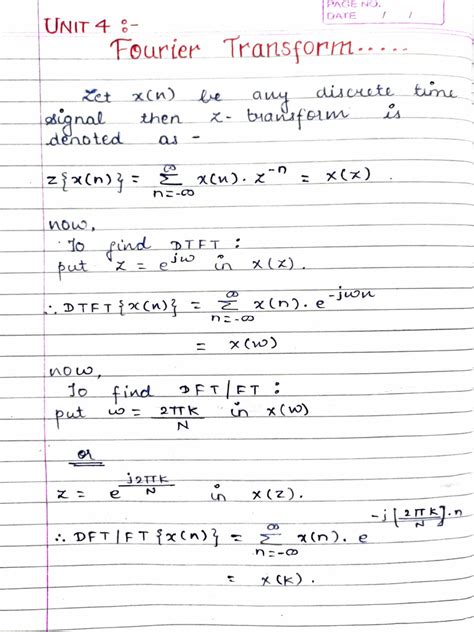 PAGE NO.
DATE / /
UNIT 4 :-
Fourier Transform.....
Let x(n) be any discrete time
signal then z-transform is
denoted as -
z{x(n)} = ∞ Σ n=-∞ x(n). z^-n = x(z).
now,
To find DTFT :
put z = e^jω in x(z).
∴ DTFT{x(n)} = ∞ Σ n=-∞ x(n). e^-jωn
= x(ω)
now,
To find DFT/FT :
put ω = 2πk/N in x(ω)
or
z = e^j2πk/N in x(z).
∴ DFT/FT{x(n)} = ∞ Σ n=-∞ x(n). e^-j[2πk/N].n
= x(k).